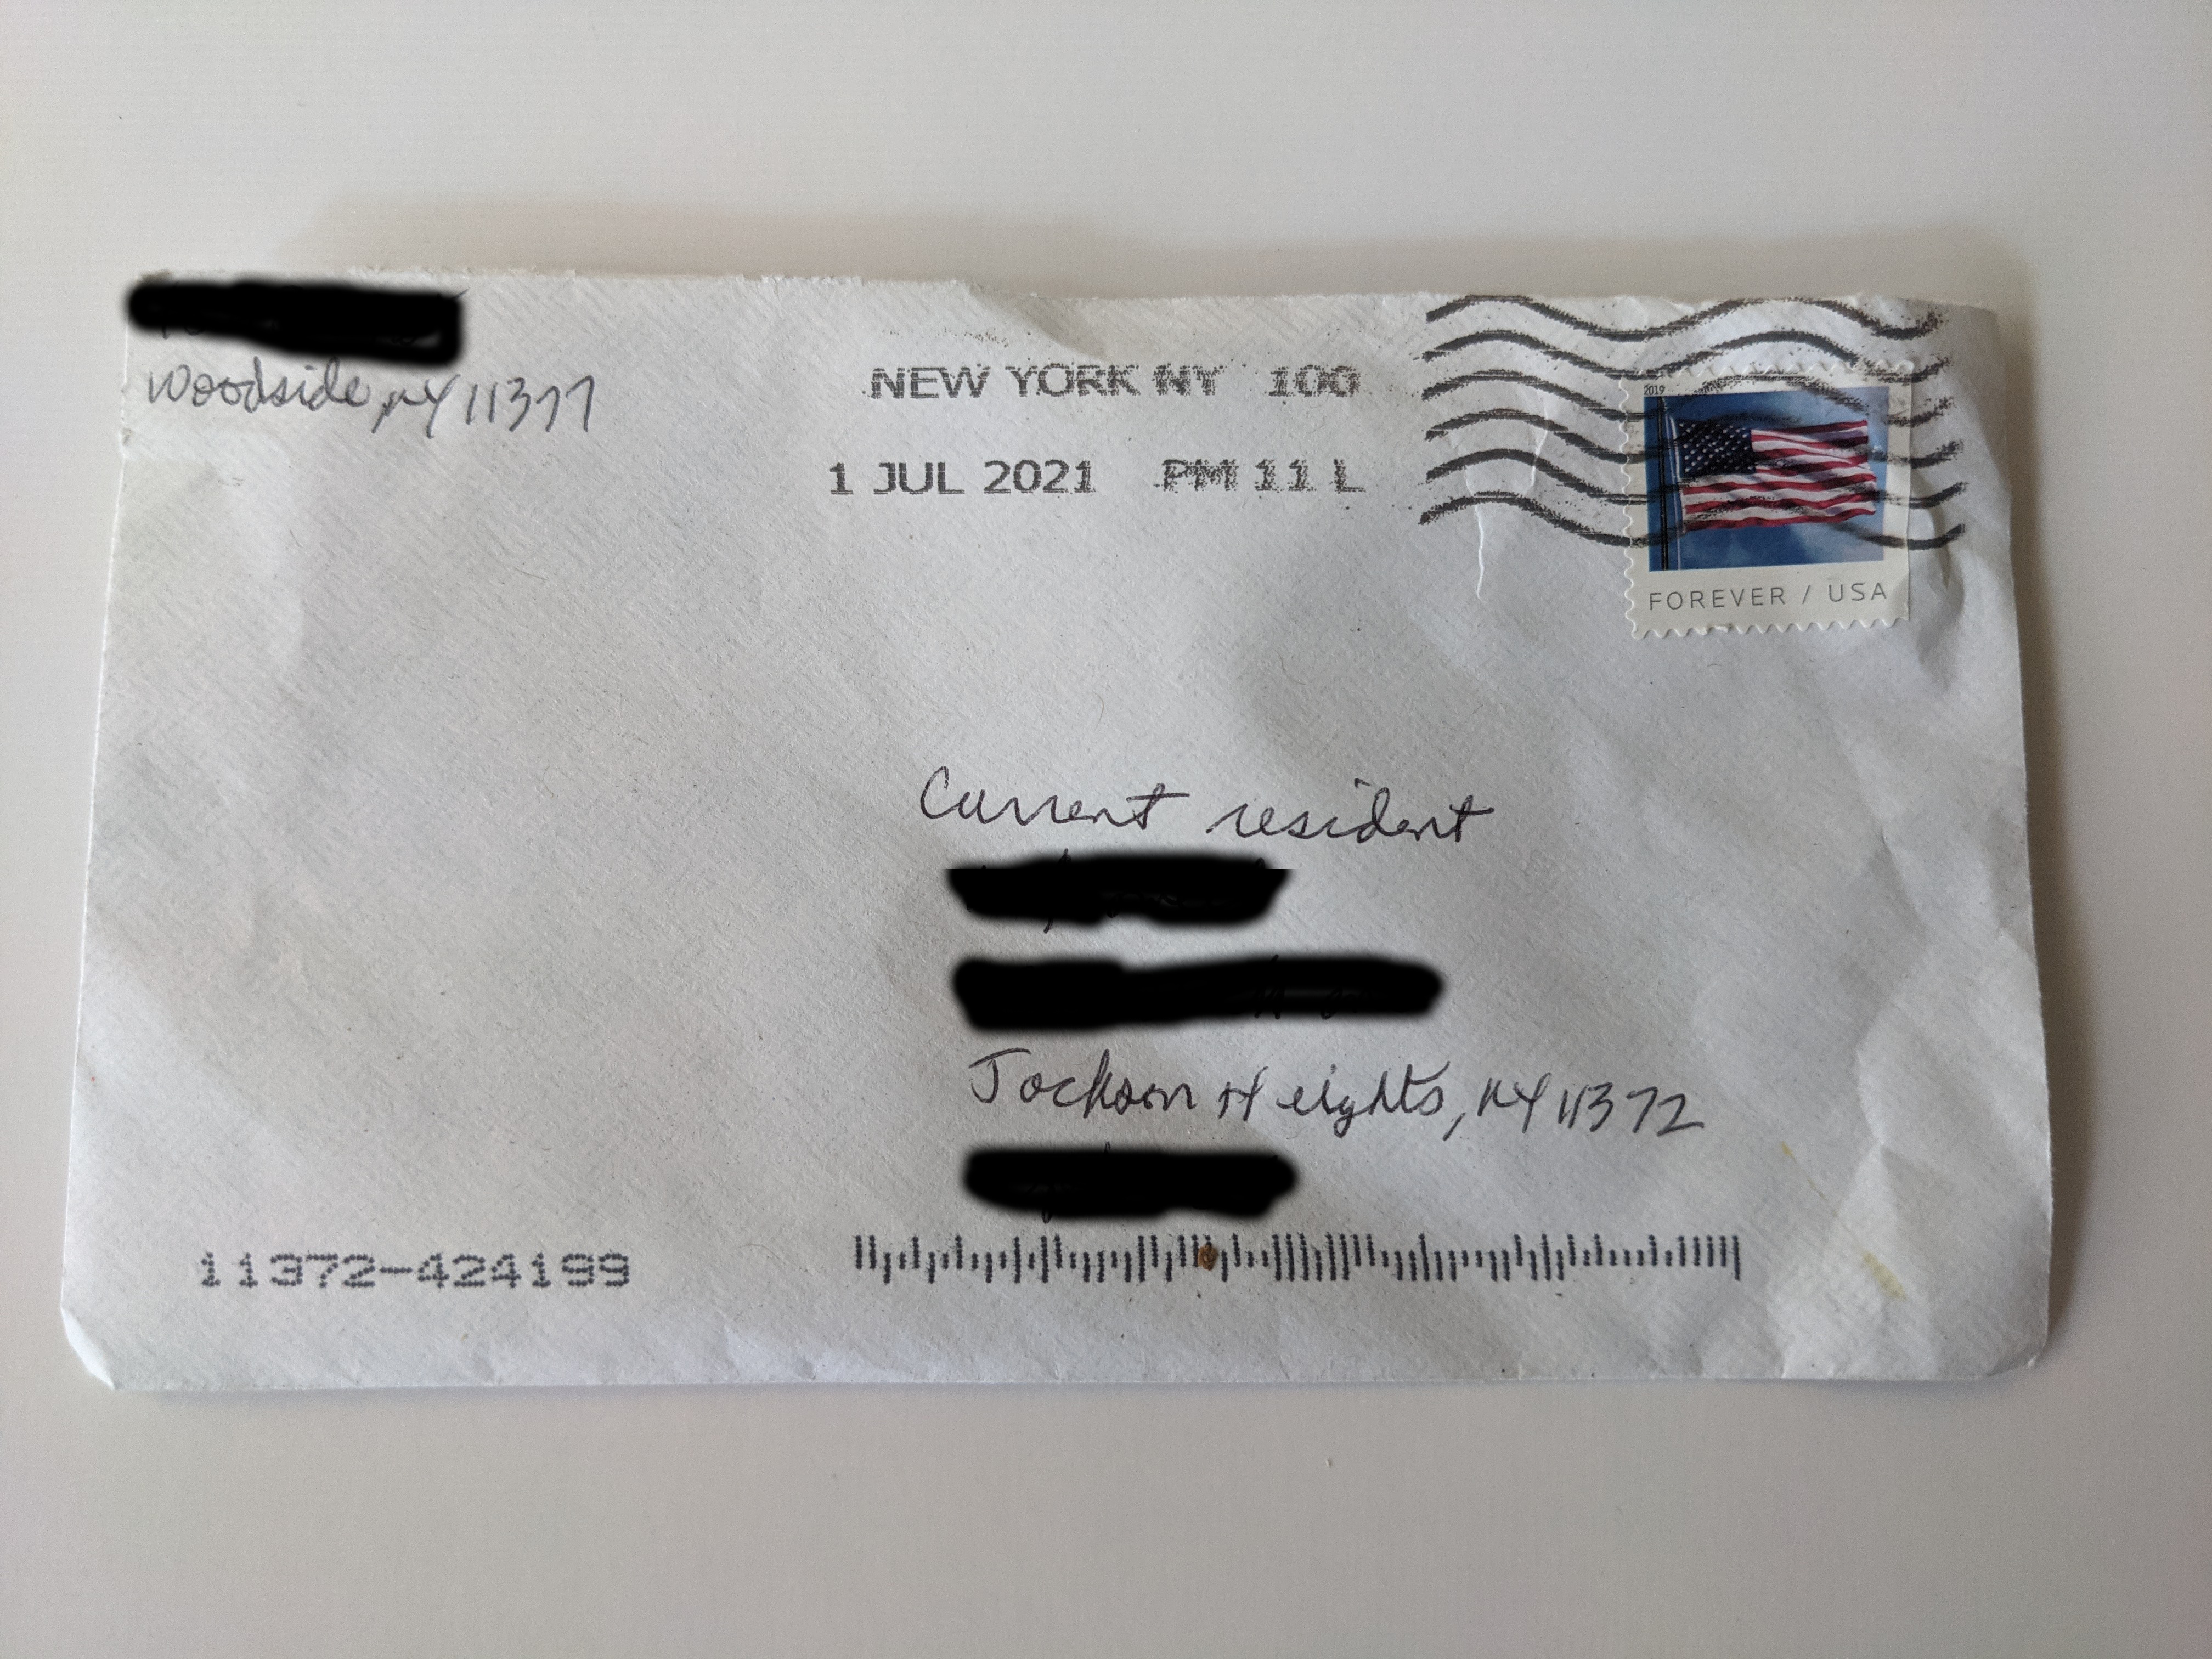 Woodside, NY 11377
NEW YORK NY 100
1 JUL 2021 PM 11 L
2019
FOREVER / USA
Current resident
Jackson Heights, NY 11372
11372-424199